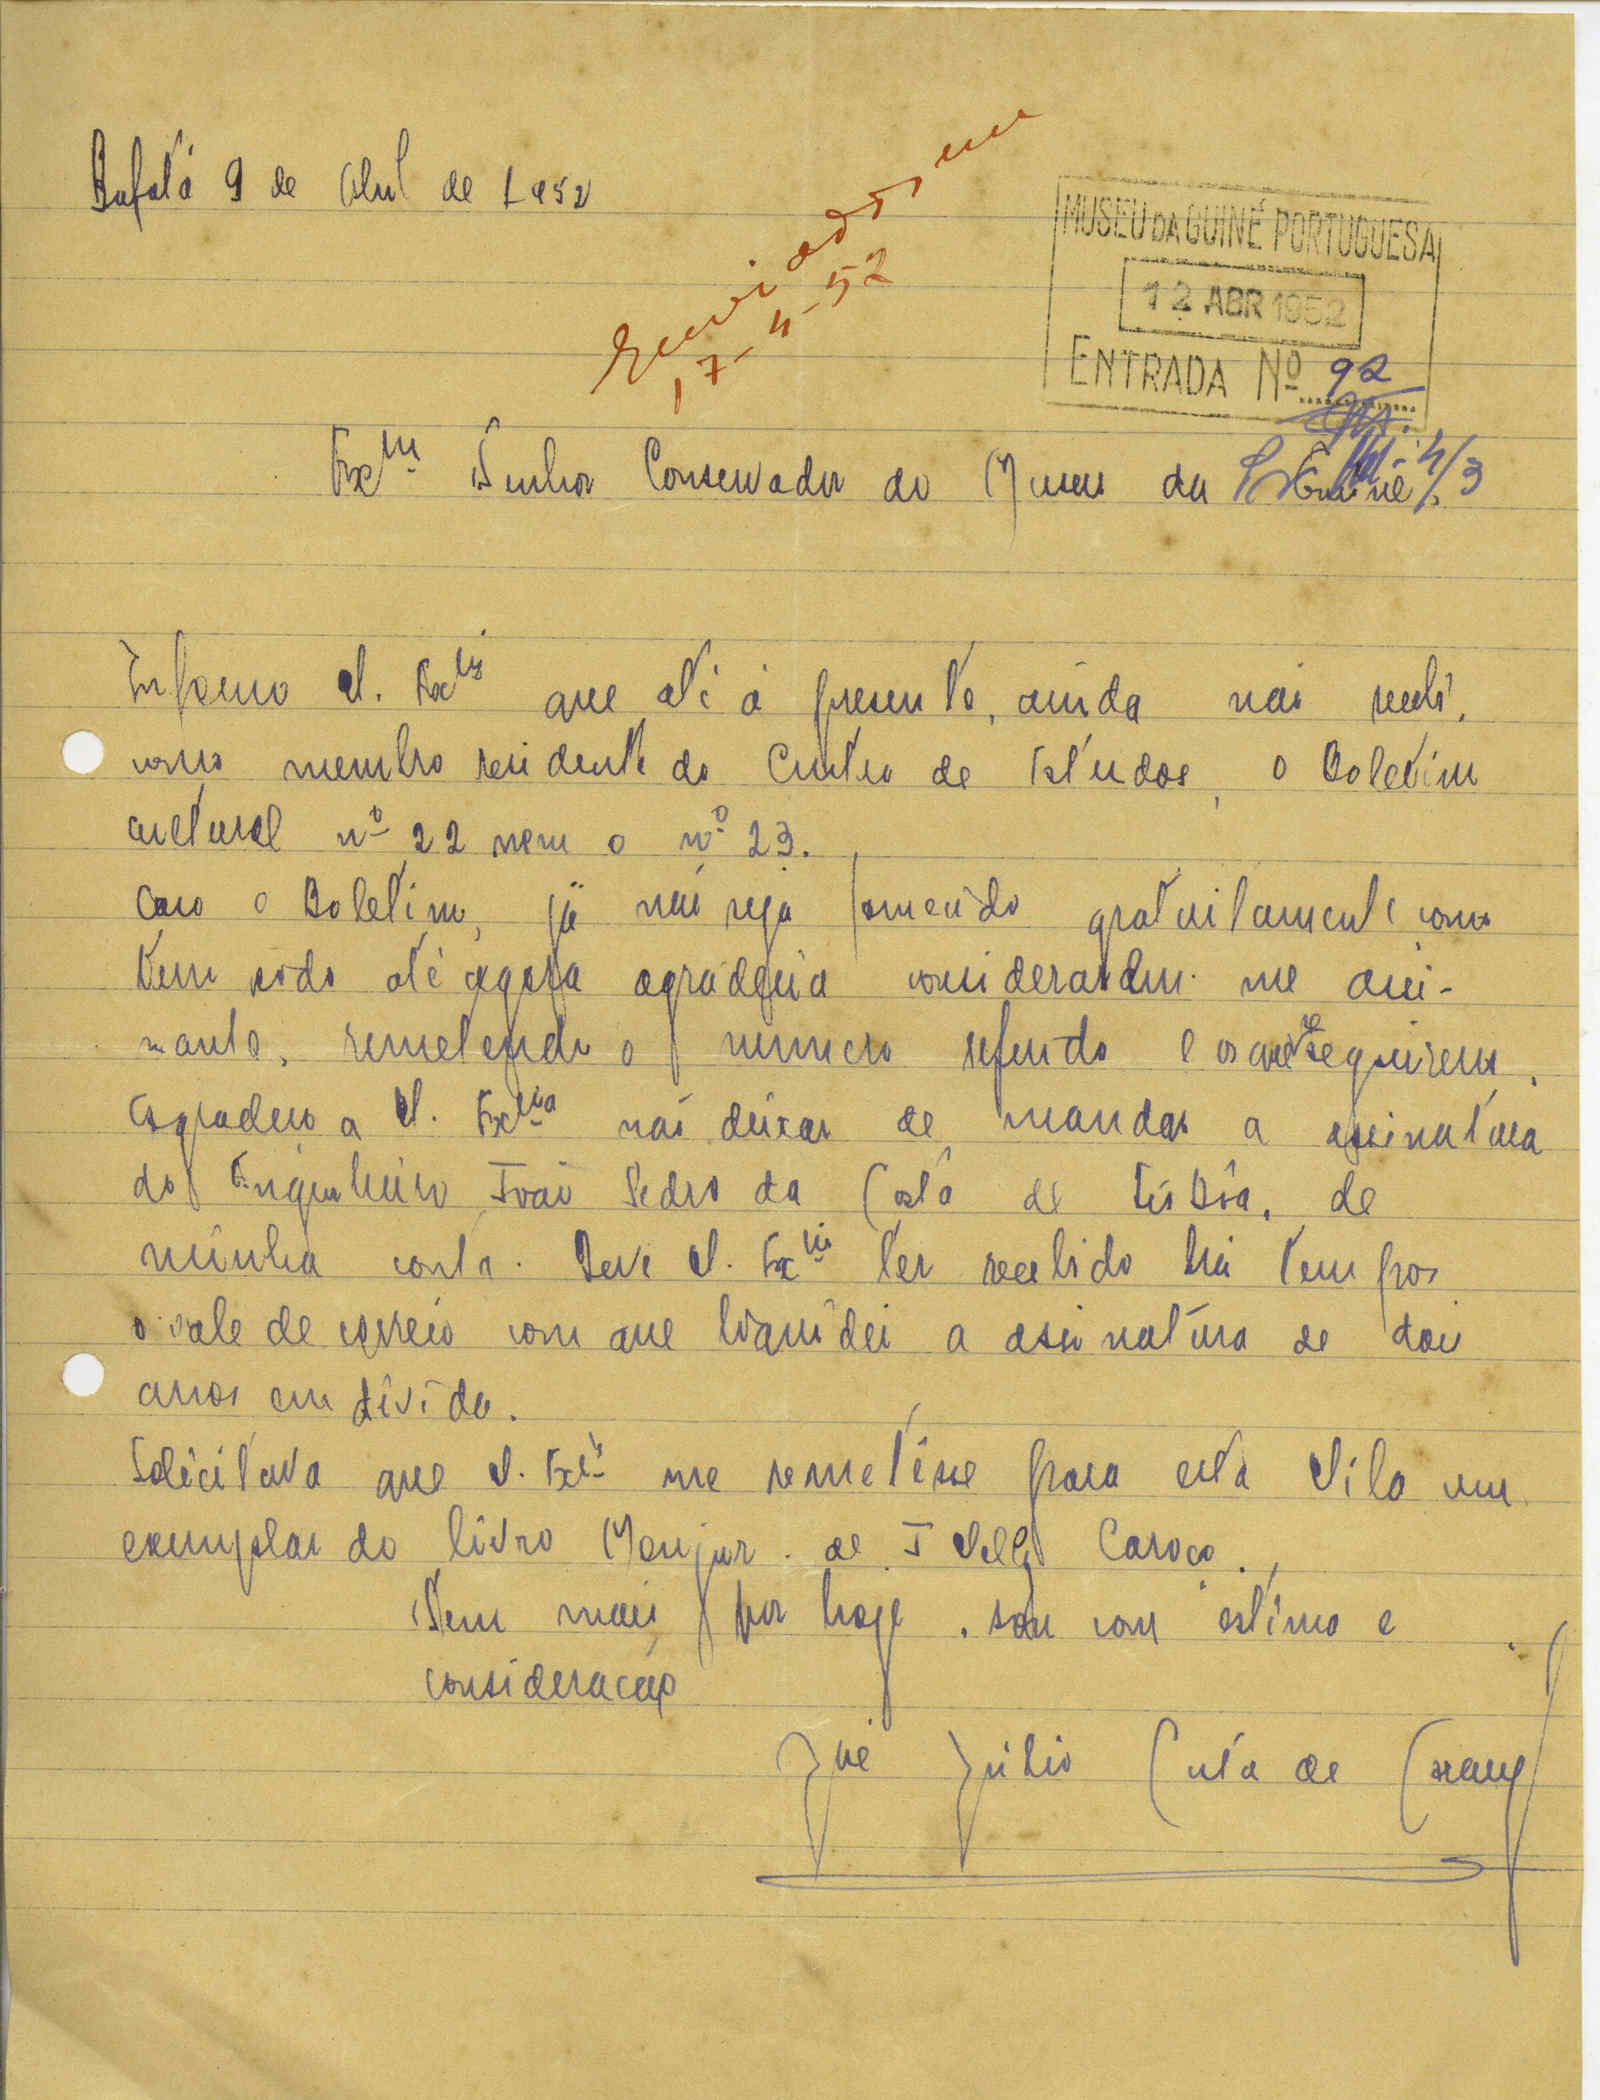 Bafatá 9 de Abril de 1952
Enviados em
17-4-52
MUSEU DA GUINÉ PORTUGUESA
12 ABR 1952
ENTRADA Nº 92
Exmº Senhor Conservador do Museu da Guiné
Informo V. Exciª que até á presente, ainda não recebi,
como membro residente do Centro de Estudos, o Boletim
cultural nº 22 nem o nº 23.
Caso o Boletim, já não seja fornecido gratuitamente como
tem sido até agora agradecia considerarem-me assi-
nante, remetendo o numero referido e os que se seguirem.
Agradeço a V. Exciª não deixar de mandar a assinatura
do Engenheiro João Pedro da Costa de Lisbôa, de
minha conta. Deve V. Exciª ter recebido há tempos
o vale de correio com que liquidei a assinatura de dois
anos em divida.
Solicitava que V. Exciª me remetêsse para esta Vila um
exemplar do livro Monjur - de J Vellez Caroço.
Sem mais por hoje, sou com estima e
consideração
José Júlio Costa de